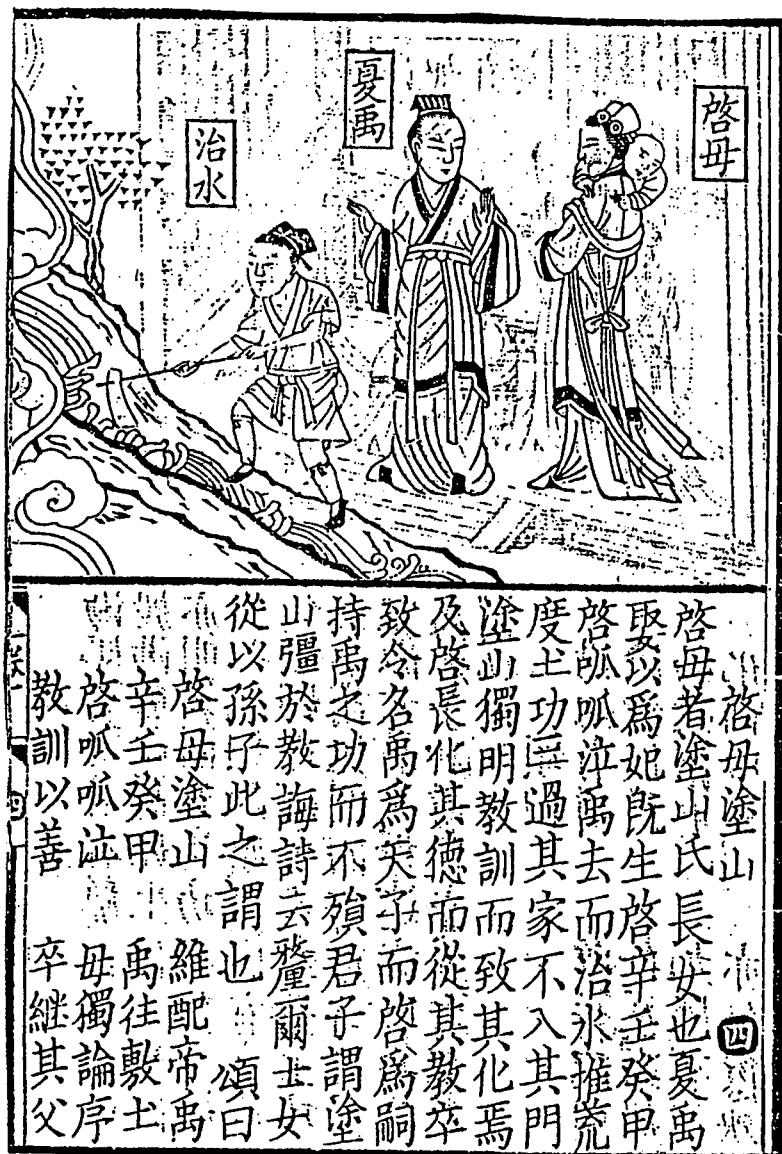 啓母
夏禹
治水
啓母塗山 四
啓母者塗山氏長女也夏禹
娶以爲妃旣生啓辛壬癸甲
啓呱呱泣禹去而治水推荒
度土功三過其家不入其門
塗山獨明教訓而致其化焉
及啓長化其徳而從其教卒
致令名禹爲天子而啓爲嗣
持禹之功而不殞君子謂塗
山彊於教誨詩云釐爾士女
從以孫子此之謂也 頌曰
啓母塗山 維配帝禹
辛壬癸甲 禹往敷土
啓呱呱泣 母獨論序
教訓以善 卒継其父
四